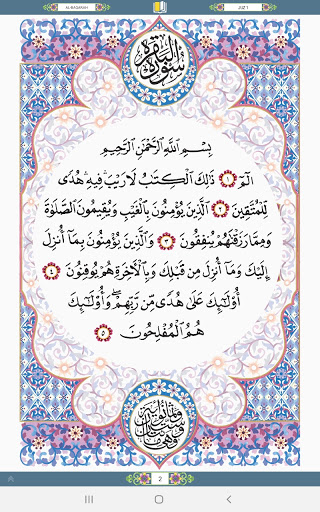 AL-BAQARAH
JUZ' 1
سورة البقرة
بِسْمِ ٱللَّهِ ٱلرَّحْمَٰنِ ٱلرَّحِيمِ
الٓمٓ ١ ذَٰلِكَ ٱلْكِتَٰبُ لَا رَيْبَ ۛ فِيهِ ۛ هُدًى
لِّلْمُتَّقِينَ ٢ ٱلَّذِينَ يُؤْمِنُونَ بِٱلْغَيْبِ وَيُقِيمُونَ ٱلصَّلَوٰةَ
وَمِمَّا رَزَقْنَٰهُمْ يُنفِقُونَ ٣ وَٱلَّذِينَ يُؤْمِنُونَ بِمَآ أُنزِلَ
إِلَيْكَ وَمَآ أُنزِلَ مِن قَبْلِكَ وَبِٱلْءَاخِرَةِ هُمْ يُوقِنُونَ ٤
أُو۟لَٰٓئِكَ عَلَىٰ هُدًى مِّن رَّبِّهِمْ ۖ وَأُو۟لَٰٓئِكَ
هُمُ ٱلْمُفْلِحُونَ ٥
2